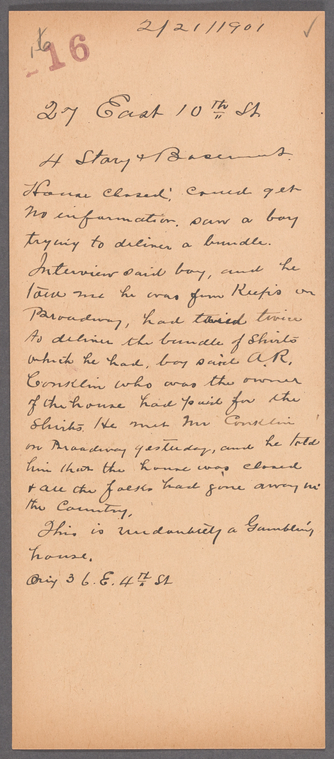 2/21/1901
16
16
27 East 10th St
4 Story & Basement.
House closed, could get
no information. saw a boy
trying to deliver a bundle.
Interview said boy, and he
told me he was from Keep's on
Broadway, had tried twice
to deliver the bundle of shirts
which he had. boy said A.R.
Conklin who was the owner
of the house had paid for the
shirts. He met Mr Conklin
on Broadway yesterday, and he told
him that the house was closed
& all the folks had gone away in
the Country.
This is undoubtedly a Gambling
house.
36. E. 4th St